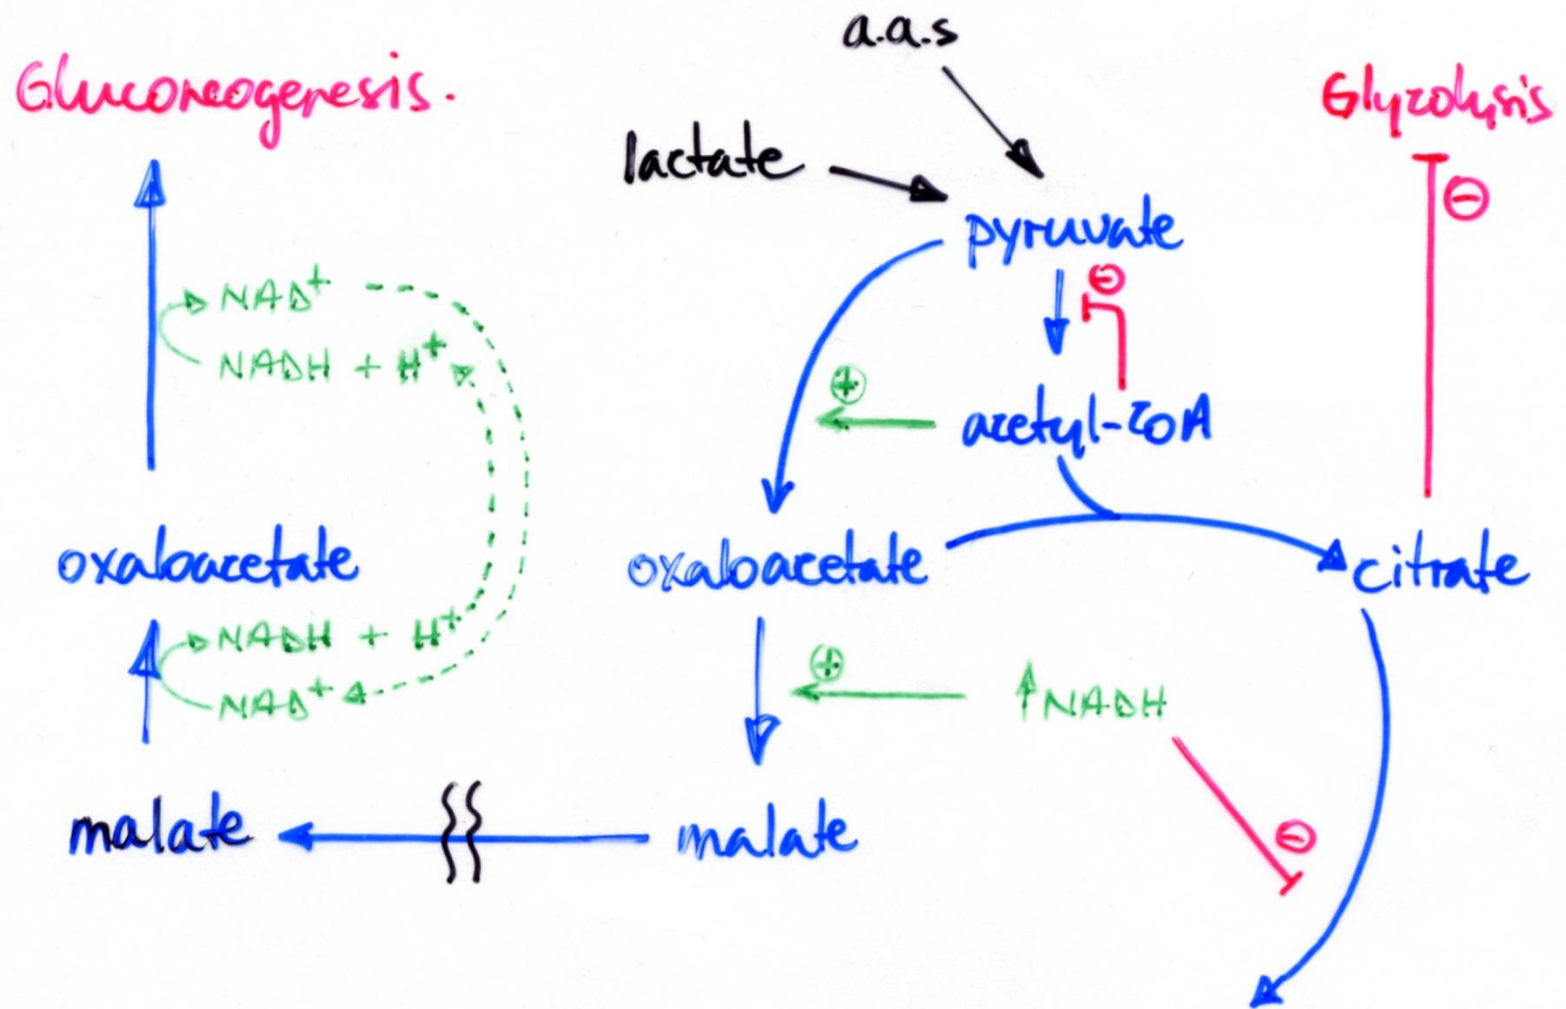 a.a.s
Gluconeogenesis.
Glycolysis
lactate
⊖
pyruvate
NAD+
⊖
NADH + H+
⊕
acetyl-coA
oxaloacetate
oxaloacetate
citrate
NADH + H+
⊕
NAD+
↑NADH
malate
malate
⊖